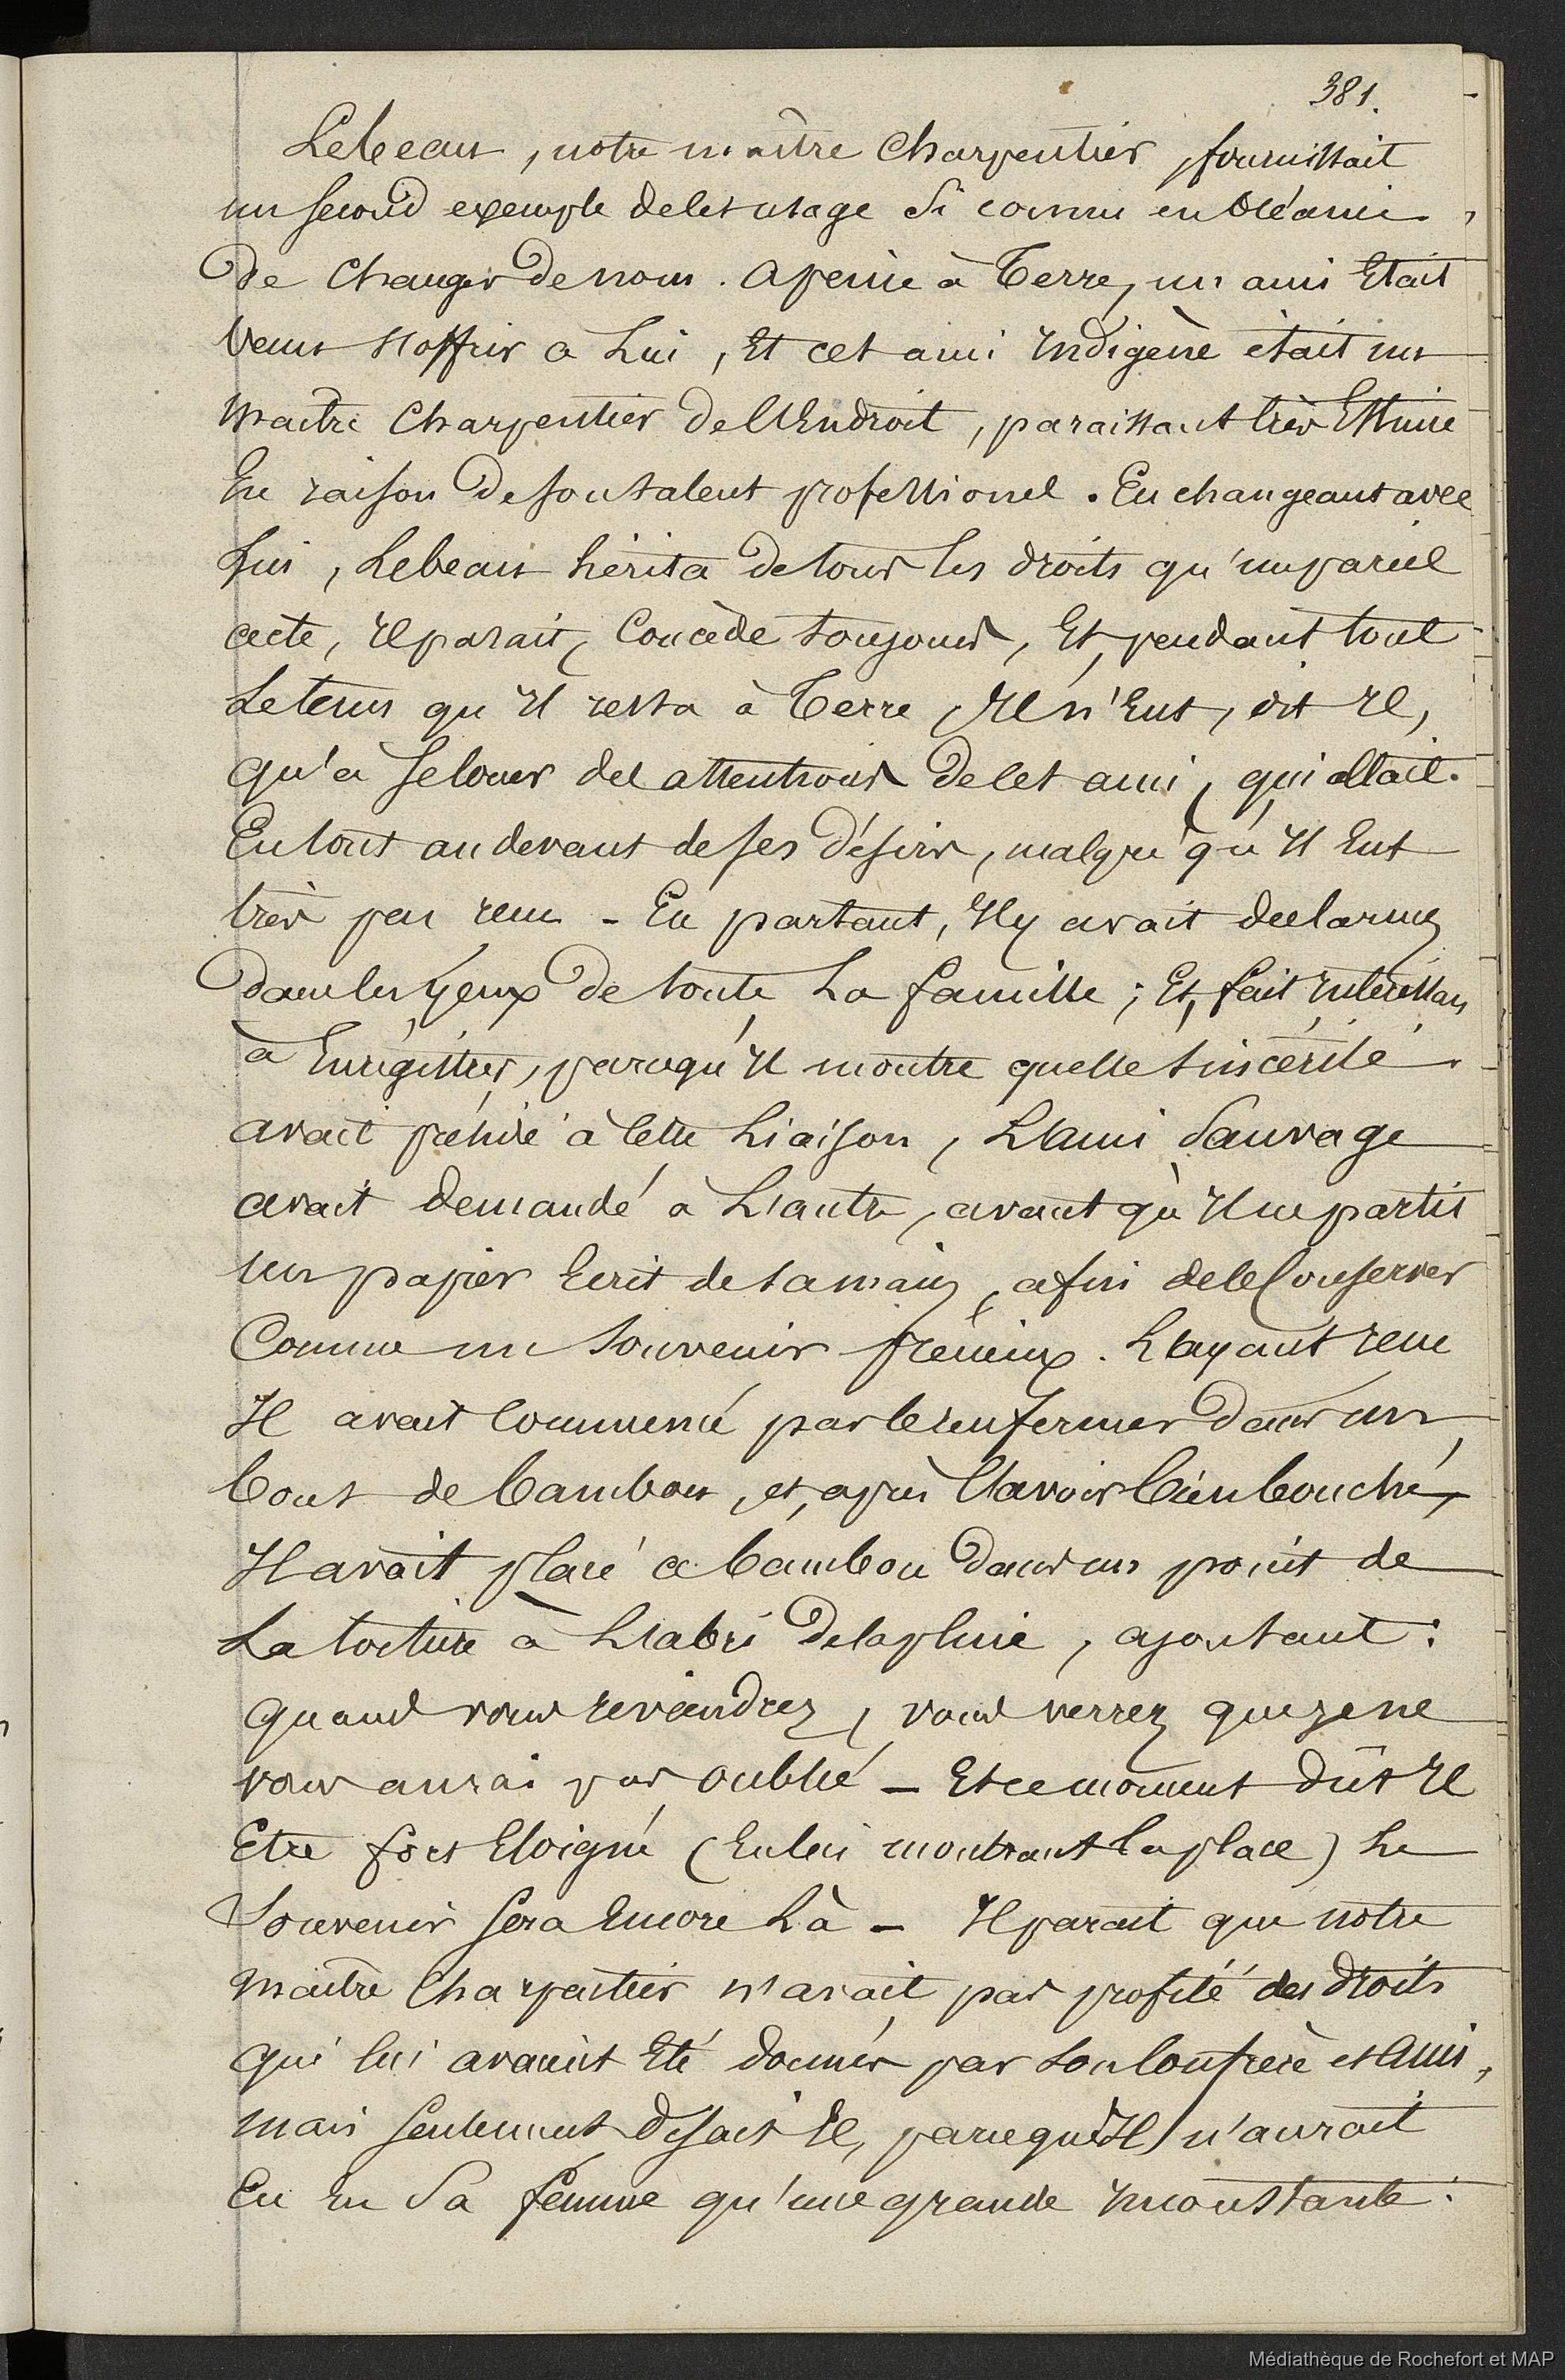 381.
Lebeau, notre maître Charpentier, fournissait
un second exemple de cet usage si connu en Océanie,
de changer de nom. A peine à Terre, un ami Etait
venu s'offrir à Lui, Et cet ami Indigène était un
maître Charpentier de l'Endroit, paraissant très Estimé
En raison de son talent professionel. En changeant avec
Lui, Lebeau hérita de tous les droits qu'un pareil
acte, Il parait, Concède toujours, Et, pendant tout
Le tems qu'Il resta à Terre, Il n'Eut, dit Il,
qu'à se louer des attentions de cet ami, qui allait
En tout au devant de ses désirs, malgré qu'Il Eut
très peu reçu - En partant, Il y avait des larmes
dans les Yeux de toute La famille; Et, fait Intéressan
à Enrégistrer, parcequ'Il montre quelle sincérité
avait présidé à cette Liaison, L'ami Sauvage
avait demandé à L'autre, avant qu'Il ne partit
un papier Ecrit de sa main, afin de le Conserver
Comme un Souvenir précieux. L'ayant reçu
Il avait Commencé par le renfermer dans un
bout de bambou, et, après l'avoir bien bouché,
Il avait placé ce bambou dans un point de
La toiture à L'abri de la pluie, ajoutant:
quand vous reviendrez, vous verrez que je ne
vous aurai pas oublié - Et ce moment dût Il
Etre fort Eloigné (En lui montrant la place) Le
Souvenir sera Encore Là - Il parait que notre
maître Charpentier n'avait pas profité des droits
qui lui avaient Eté donnés par son Confrère et Ami,
mais seulement disait Il, parcequ'Il n'aurait
Eu En Sa femme qu'une grande Inconstante.